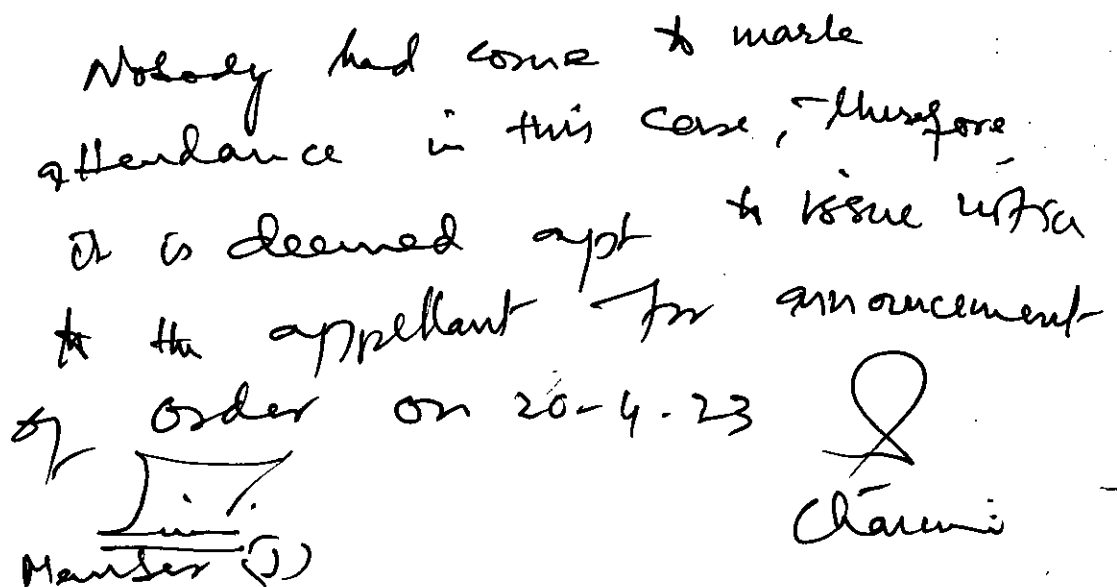 Nobody had come to mark
attendance in this case, therefore
it is deemed apt to issue notice
to the appellant for announcement
of order on 20-4-23
Member (J)